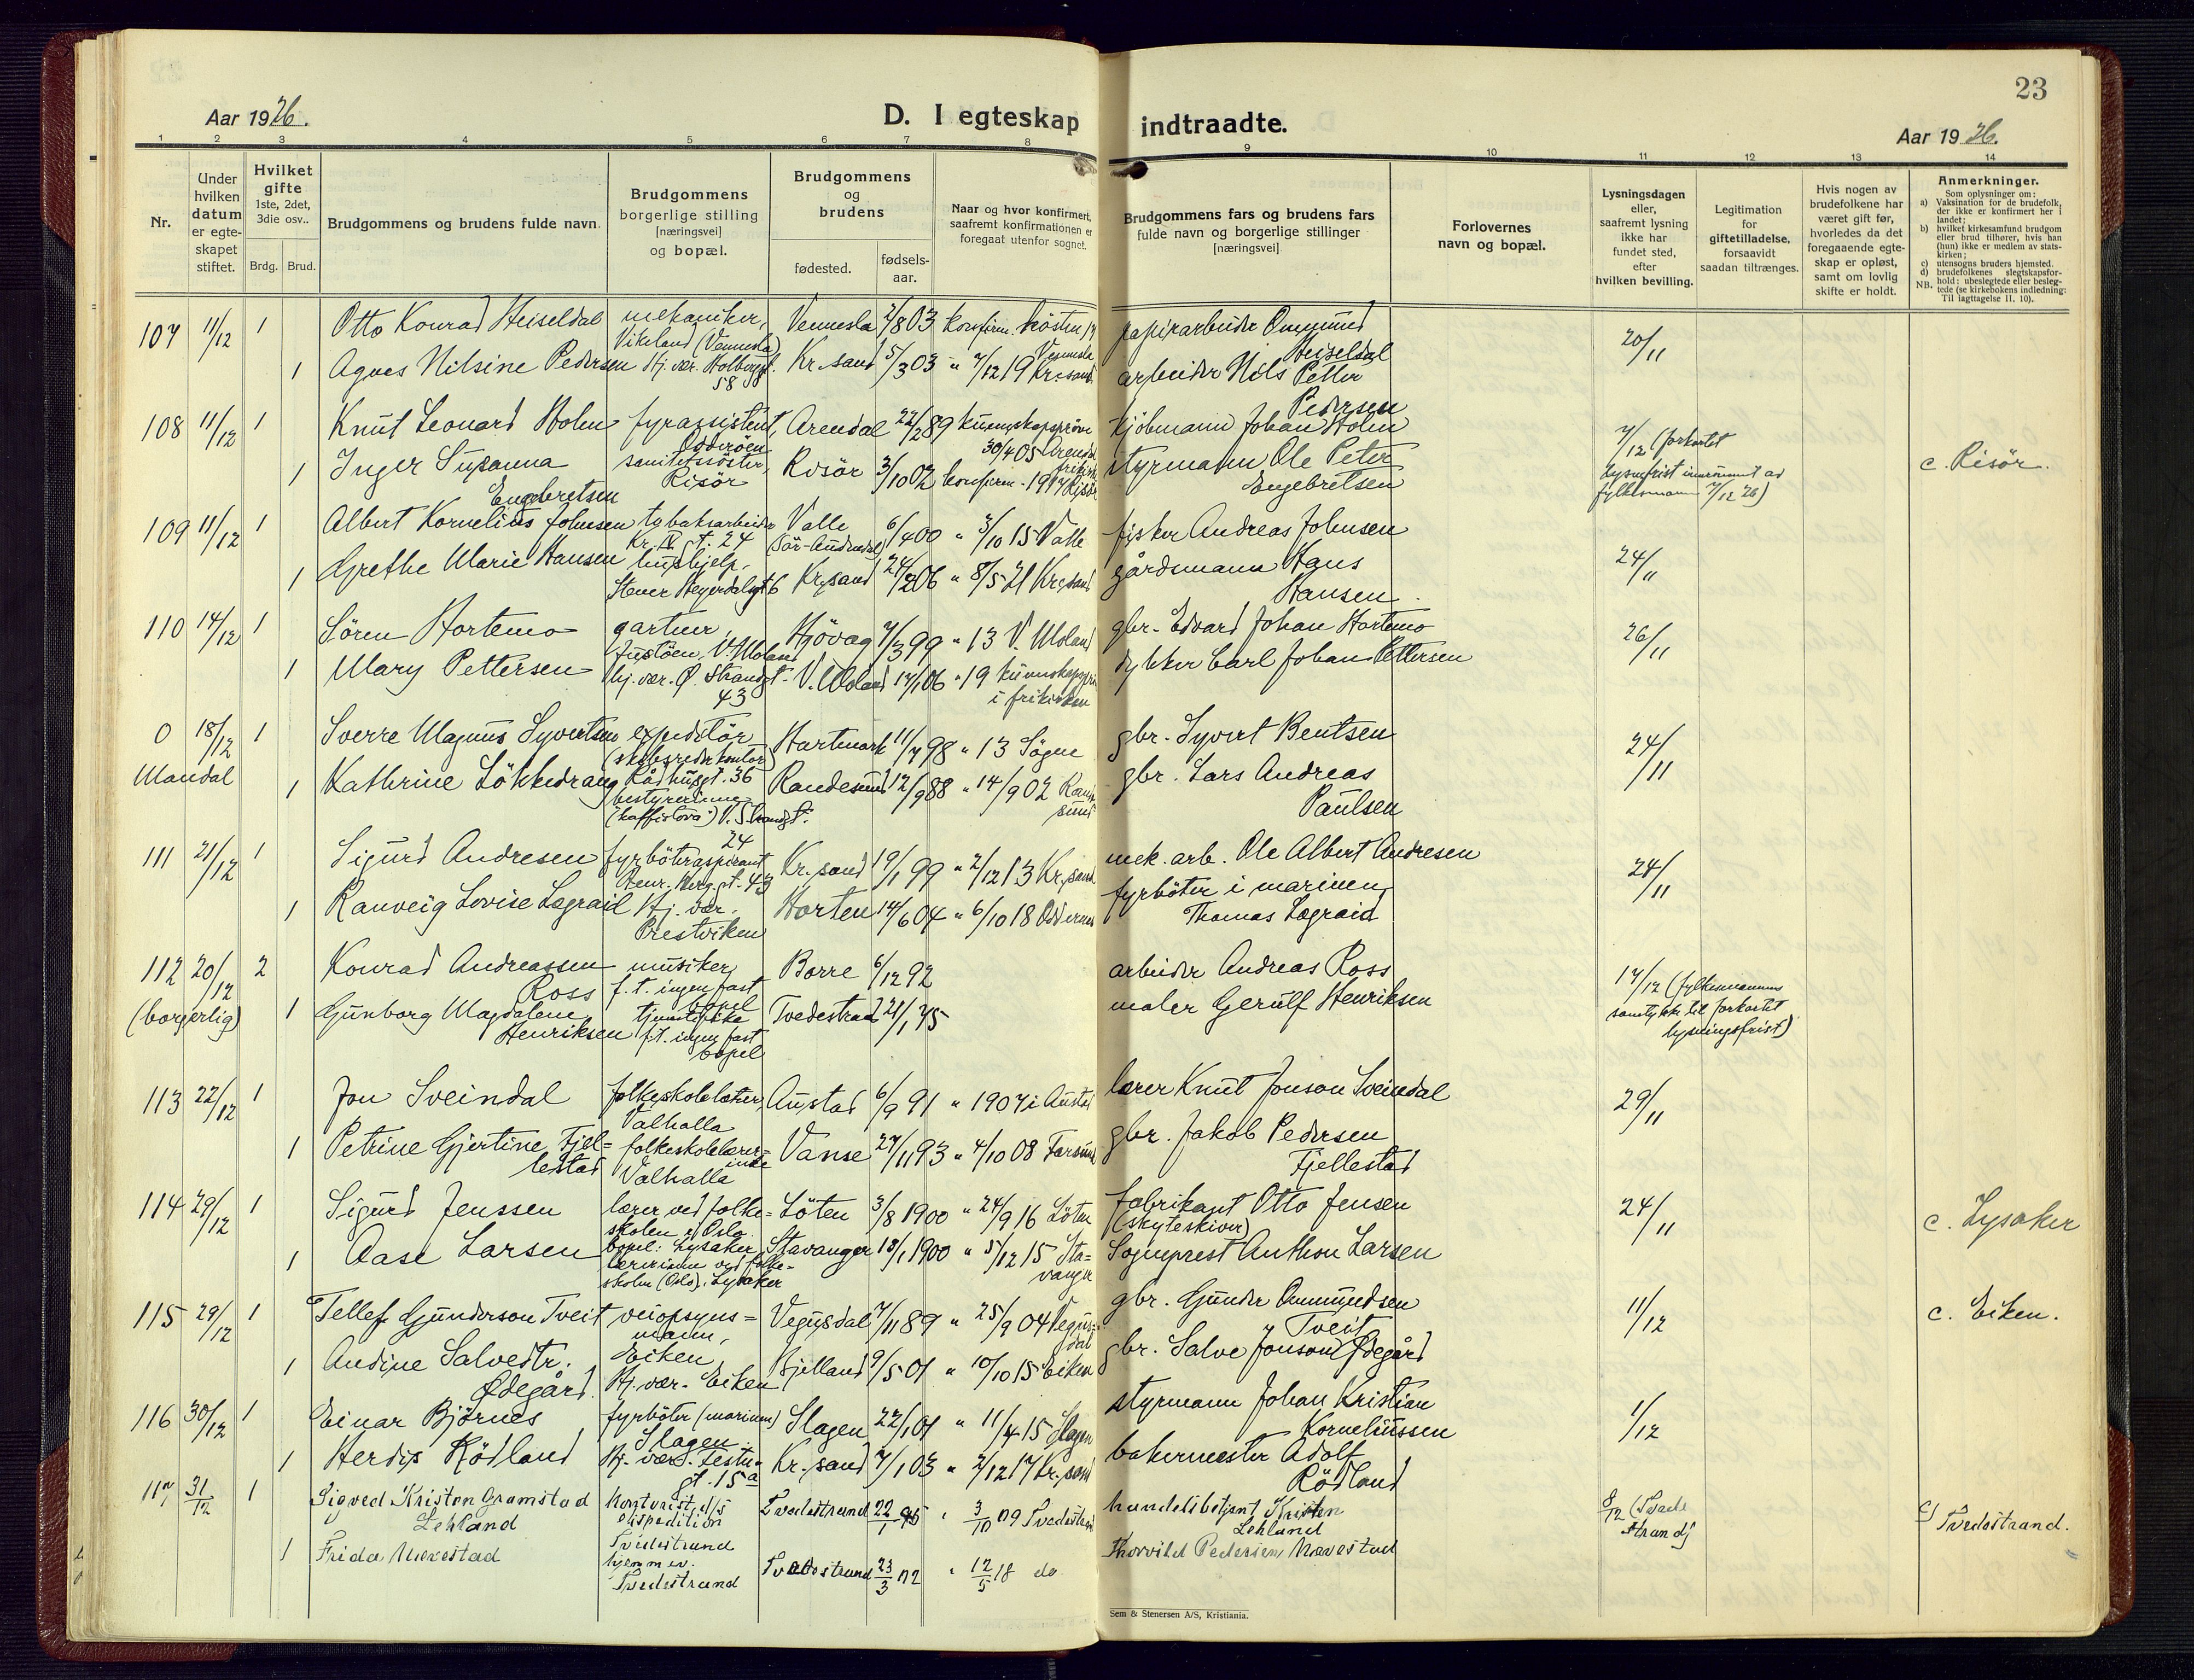 23
Aar 1926.
D. I egteskap indtraadte.
Aar 1926.
1 2 3 4 5 6 7 8 9 10 11 12 13 14
Nr.
Under hvilken datum er egte- skapet stiftet.
Hvilket gifte 1ste, 2det, 3die osv..
Brdg. Brud.
Brudgommens og brudens fulde navn.
Brudgommens borgerlige stilling [næringsvei] og bopæl.
Brudgommens og brudens
fødested.
fødsels- aar.
Naar og hvor konfirmert, saafremt konfirmationen er foregaat utenfor sognet.
Brudgommens fars og brudens fars fulde navn og borgerlige stillinger [næringsvei]
Forlovernes navn og bopæl.
Lysningsdagen eller, saafremt lysning ikke har fundet sted, efter hvilken bevilling.
Legitimation for giftetilladelse, forsaavidt saadan tiltrænges.
Hvis nogen av brudefolkene har været gift før, hvorledes da det foregaaende egte- skap er opløst, samt om lovlig skifte er holdt.
Anmerkninger.
Som oplysninger om:
a) Vaksination for de brudefolk, der ikke er konfirmert her i landet;
b) hvilket kirkesamfund brudgom eller brud tilhører, hvis han (hun) ikke er medlem av stats- kirken;
c) utensogns bruders hjemsted.
d) brudefolkenes slegtskapsfor- hold: ubeslegtede eller besleg- tede (se kirkebokens indledning: Til iagttagelse II. 10).
NB.
107 11/12 1 Otto Konrad Heiseldal mekaniker, Vikeland (Vennesla) Vennesla 2/8 03 konfirm. høsten Vennesla papirarbeider Ommund Heiseldal 20/11
1 Agnes Nilsine Pedersen Hj. vær. Holbergt. 58 Kr.sand 5/3 03 " 7/12 19 Kr.sand arbeider Nils Petter Pedersen
108 11/12 1 Knut Leonard Holm fyrassistent, Odderöen Arendal 22/2 89 kunnskapsprøve 30/4 05 Arendal kjöbmann Johan Holm 7/12 (forkortet lysnfrist innrömmet av fylkesmann 7/12 26)
1 Inger Susanna Engebretsen sanitetssöster, Risör Risör 3/10 02 konfirm. 1917 Risör styrmann Ole Peter Engebretsen c. Risör.
109 11/12 1 Albert Kornelius Johnsen tobaksarbeider Kr. IV gt. 24 Valle (Sör-Audnedal) 6/4 00 " 3/10 15 Valle fisker Andreas Johnsen 24/11
1 Grethe Marie Hansen hushjelp. Stener Heyerdalsgt 6 Kr.sand 24/2 06 " 8/5 21 Kr.sand gårdsmann Hans Hansen
110 14/12 1 Sören Hortemo gartner, Justöen, V. Moland Hövåg 7/3 99 " 13 V. Moland gbr. Edvard Johan Hortemo 26/11
1 Mary Pettersen hj. vær. Ø. Strandgt. 43 V. Moland 17/1 06 " 19 kunnskapspr. i frikirken dykker Carl Johan Pettersen
0 Mandal 18/12 1 Sverre Magnus Syvertsen expeditör (skibsrederkontor) Rådhusgt. 36 Hartmark 11/7 98 " 13 Sögne gbr. Syvert Bentsen 24/11
1 Kathrine Lökkedrang bestyrerinne ("kaffistova") V. Strandgt. 24 Randesund 12/9 88 " 14/9 02 Randesund gbr. Lars Andreas Paulsen
111 21/12 1 Sigurd Andresen fyrböteraspirant Henr. Werg.gt. 43 Kr.sand 19/1 99 " 2/12 13 Kr.sand mek. arb. Ole Albert Andresen 24/11
1 Ranveig Lovise Lögraid Hj. vær. Prestviken Horten 14/6 04 " 6/10 18 Oddernes fyrböter i marinen, Thomas Lögraid
112 (borgerlig) 20/12 2 Konrad Andreassen Ross musiker, f. t. ingen fast bopel Borre 6/12 92 arbeider Andreas Ross 17/12 (fylkesmannens samtykke til forkortet lysningsfrist)
1 Gunborg Magdalene Henriksen f.t. ingen fast bopel Tvedestrand 21/1 75 maler Gerulf Henriksen
113 22/12 1 Jon Sveindal folkeskolelærer, Valhalla Austad 6/9 91 " 1907 i Austad lærer Knut Jonson Sveindal 29/11
1 Petrine Gjertine Fjel= lestad folkeskolelærer= inde Valhalla Vanse 27/11 93 " 4/10 08 Farsund gbr. Jakob Pedersen Fjellestad
114 29/12 1 Sigurd Jenssen lærer ved folke= skolen i Oslo bopel: Lysaker Löten 3/8 1900 " 24/9 16 Löten fabrikant Otto Jensen (skyteskiver) 24/11 c. Lysaker
1 Aase Larsen lærerinne ved folke- skolen (Oslo). Lysaker Stavanger 18/1 1900 " 5/12 15 Sta= vanger Sogneprest Anthon Larsen
115 29/12 1 Tellef Gunderson Tveit veiopsyns= mann, Eiken Vegusdal 7/11 89 " 25/9 04 Vegus= dal gbr. Gunder Ommundsen Tveit 11/12 c. Eiken.
1 Andine Salvestr. Ødegård. Hj. vær. Eiken Bjelland 9/5 01 " 10/10 15 Eiken gbr. Salve Jonson Ødegård
116 30/12 1 Einar Björnes fyrböter (marinen) Slagen Slagen 22/1 01 " 11/4 15 Slagen styrmann Johan Kristian Korneliussen 1/12
1 Herdis Rödland Hj. vær. Festn. gt. 15a Kr.sand 7/1 03 " 2/12 17 Kr.sand bakermester Adolf Rödland
117 31/12 1 Sigved Kristen Gramstad Lekland Kontorist, d/s ekspedition Tvedestrand Tvedestrand 22/1 96 " 3/10 09 Tvedestrand handelsbetjent Kristen Lekland 8/12 (Tvede strand) c) Tvedestrand.
1 Frida Nævestad hjemmev. Tvedestrand Tvedestrand 23/3 02 " 12/5 18 do Thorvild Pedersen Nævestad
Sem & Stenersen A/S, Kristiania.